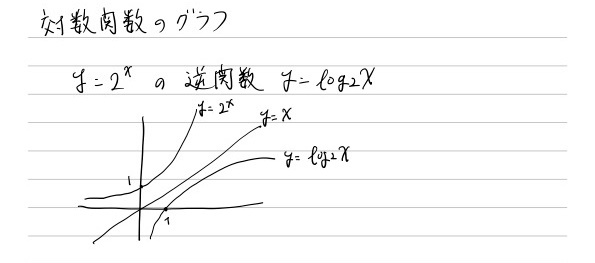 対数関数のグラフ
y=2^x の 逆関数 y=log2x
y=2^x
y=x
y=log2x
1
1